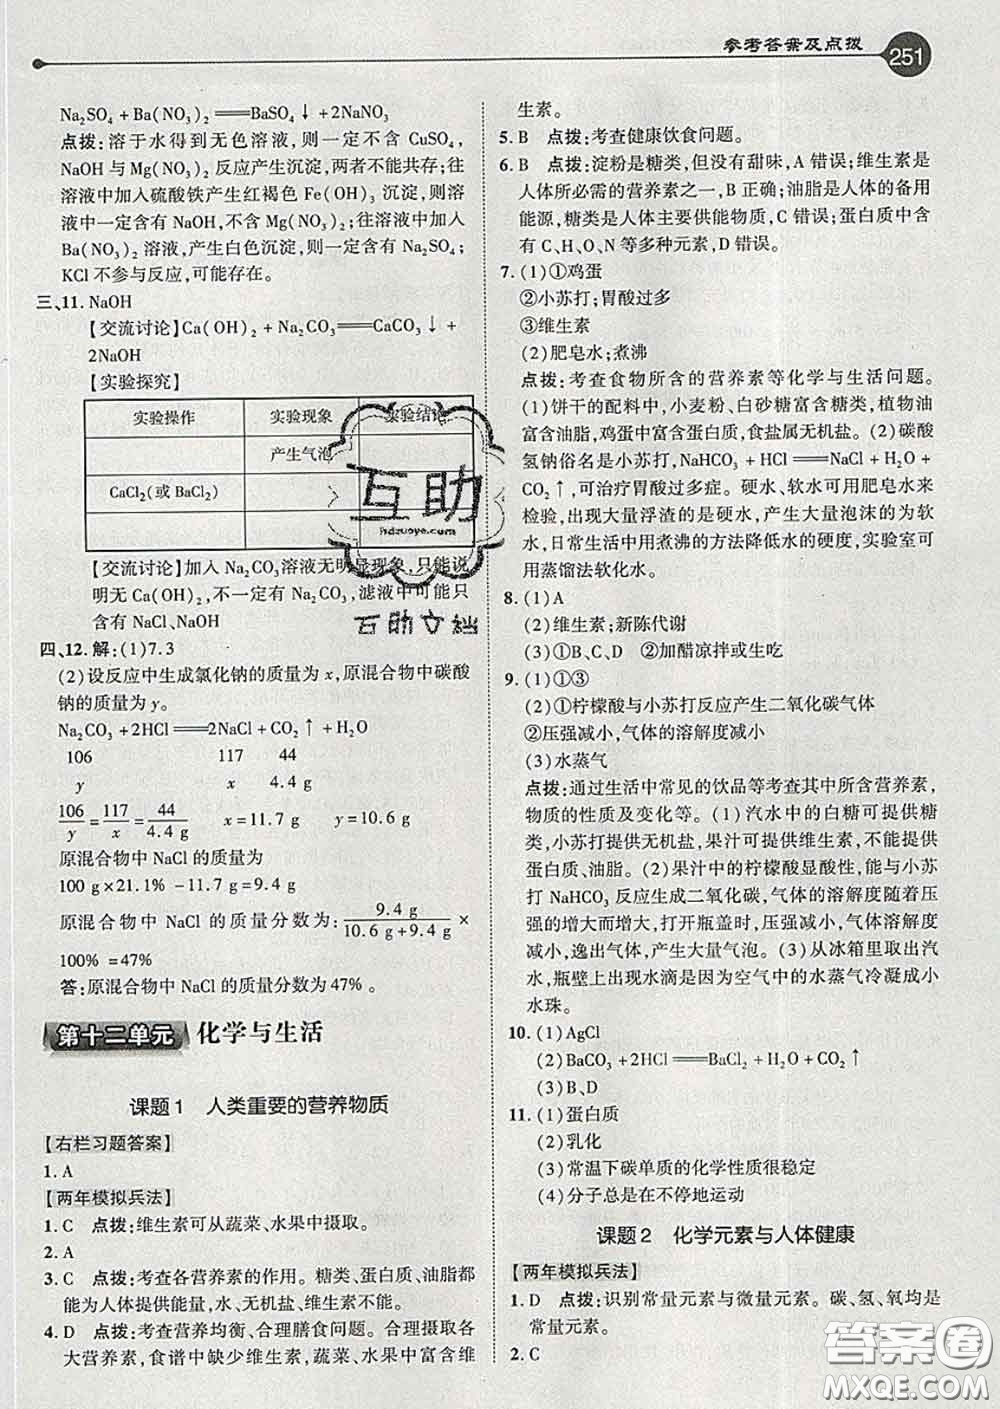 参考答案及点拨
251
Na₂SO₄ + Ba(NO₃)₂══BaSO₄↓ + 2NaNO₃
点拨:溶于水得到无色溶液,则一定不含 CuSO₄,
NaOH 与 Mg(NO₃)₂ 反应产生沉淀,两者不能共存;往
溶液中加入硫酸铁产生红褐色 Fe(OH)₃ 沉淀,则原
溶液中一定含有 NaOH,不含 Mg(NO₃)₂;往溶液中加入
Ba(NO₃)₂ 溶液,产生白色沉淀,则一定含有 Na₂SO₄;
KCl 不参与反应,可能存在。
三、11. NaOH
【交流讨论】Ca(OH)₂ + Na₂CO₃══CaCO₃↓ +
2NaOH
【实验探究】
实验操作 实验现象 实验结论
产生气泡
CaCl₂(或 BaCl₂)
【交流讨论】加入 Na₂CO₃溶液无明显现象,只能说
明无 Ca(OH)₂,溶液中可能有 Na₂CO₃,滤液中可能只
含有 NaCl、NaOH
四、12. 解:(1)7.3
(2)设反应中生成氯化钠的质量为 x,原混合物中碳酸
钠的质量为 y。
Na₂CO₃ +2HCl══2NaCl + CO₂↑ + H₂O
106 117 44
y x 4.4 g
106/y = 117/x = 44/4.4 g x =11.7 g y =10.6 g
原混合物中 NaCl 的质量为
100 g×21.1% -11.7 g =9.4 g
原混合物中 NaCl 的质量分数为: 9.4 g/10.6 g+9.4 g ×
100% =47%
答:原混合物中 NaCl 的质量分数为 47% 。
第十二单元 化学与生活
课题1 人类重要的营养物质
【右栏习题答案】
1. A
【两年模拟兵法】
1. C 点拨:维生素可从蔬菜、水果中摄取。
2. A
3. C 点拨:考查各营养素的作用。糖类、蛋白质、油脂都
能为人体提供能量,水、无机盐、维生素不能。
4. D 点拨:考查营养均衡、合理膳食问题。合理摄取各
大营养素,食谱中缺少维生素,蔬菜、水果中富含维
生素。
5. B 点拨:考查健康饮食问题。
6. B 点拨:淀粉是糖类,但没有甜味,A 错误;维生素是
人体所必需的营养素之一,B 正确;油脂是人体的备用
能源,糖类是人体主要供能物质,C 错误;蛋白质中含
有 C、H、O、N 等多种元素,D 错误。
7. (1)①鸡蛋
②小苏打;胃酸过多
③维生素
(2)肥皂水;煮沸
点拨:考查食物所含的营养素等化学与生活问题。
(1)饼干的配料中,小麦粉、白砂糖富含糖类,植物油
富含油脂,鸡蛋中富含蛋白质,食盐属无机盐。(2)碳酸
氢钠俗名是小苏打,NaHCO₃ + HCl══NaCl + H₂O +
CO₂↑,可治疗胃酸过多症。硬水、软水可用肥皂水来
检验,出现大量浮渣的是硬水,产生大量泡沫的为软
水,日常生活中用煮沸的方法降低水的硬度,实验室可
用蒸馏法软化水。
8. (1)A
(2)维生素;新陈代谢
(3)①B、C、D ②加醋凉拌或生吃
9. (1)①③
(2)①柠檬酸与小苏打反应产生二氧化碳气体
②压强减小,气体的溶解度减小
(3)水蒸气
点拨:通过生活中常见的饮品等考查其中所含营养素,
物质的性质及变化等。(1)汽水中的白糖可提供糖
类,小苏打提供无机盐,果汁可提供维生素,不能提供
蛋白质、油脂。(2)果汁中的柠檬酸显酸性,能与小苏
打 NaHCO₃ 反应生成二氧化碳,气体的溶解度随着压
强的增大而增大,打开瓶盖时,压强减小,气体溶解度
减小,逸出气体,产生大量气泡。(3)从冰箱里取出汽
水,瓶壁上出现水滴是因为空气中的水蒸气冷凝成小
水珠。
10. (1)AgCl
(2)BaCO₃ +2HCl══BaCl₂ + H₂O + CO₂↑
(3)B、D
11. (1)蛋白质
(2)乳化
(3)常温下碳单质的化学性质很稳定
(4)分子总是在不停地运动
课题2 化学元素与人体健康
【两年模拟兵法】
1. D 点拨:识别常量元素与微量元素。碳、氢、氧均是
常量元素。
2. C
互助
hdzuoye.com
互助文档
答案圈
MXQE.COM